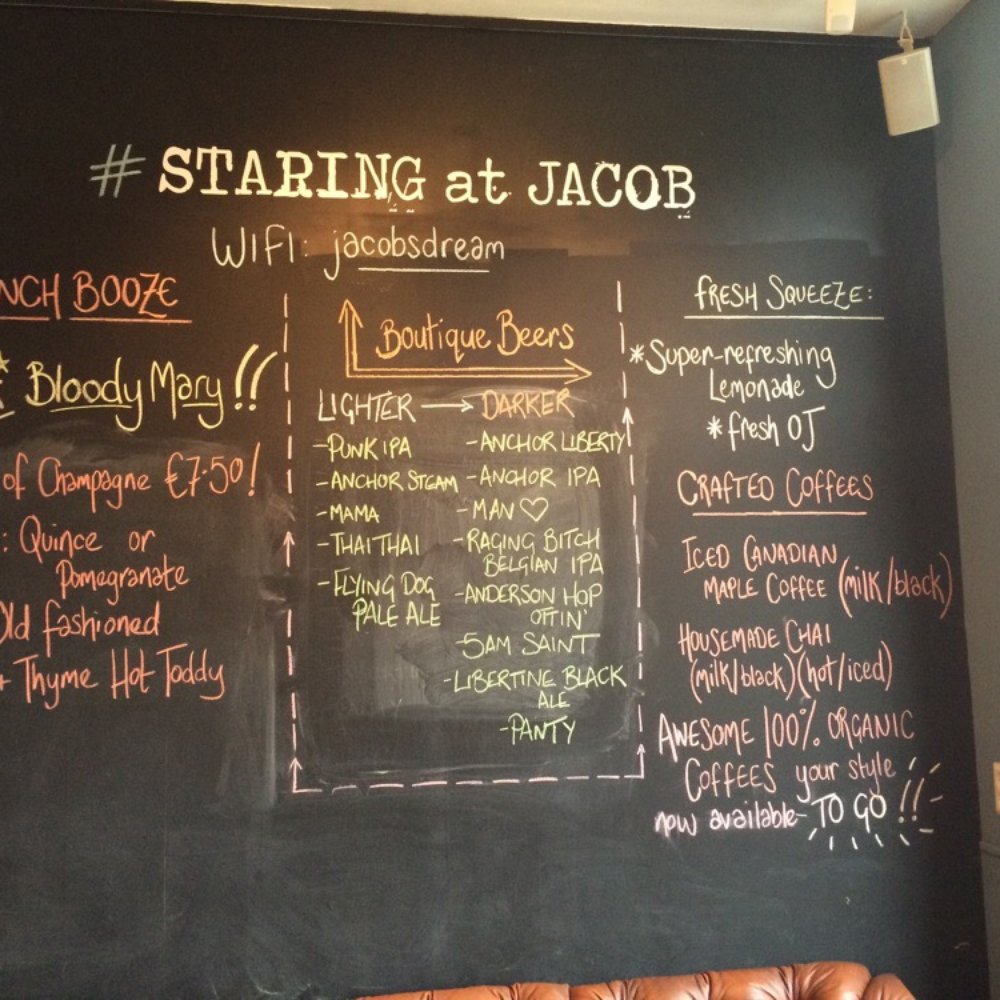 # STARING at JACOB
WIFI: jacobsdream
NCH BOOZE
* Bloody Mary !!
of Champagne €7.50!
: Quince or
Pomegranate
Old fashioned
+ Thyme Hot Toddy
Boutique Beers
LIGHTER → DARKER
-PUNK IPA
-ANCHOR STEAM
-MAMA
-THAI THAI
-FLYING DOG
PALE ALE
-ANCHOR LIBERTY
-ANCHOR IPA
-MAN ♡
-RAGING BITCH
BELGIAN IPA
-ANDERSON HOP
OTTIN'
-5AM SAINT
-LIBERTINE BLACK
ALE
-PANTY
FRESH SQUEEZE:
*Super-refreshing
Lemonade
*fresh OJ
CRAFTED COFFEES
ICED CANADIAN
MAPLE COFFEE (milk/black)
HOUSEMADE CHAI
(milk/black)(hot/iced)
AWESOME 100% ORGANIC
COFFEES your style
now available- TO GO !!